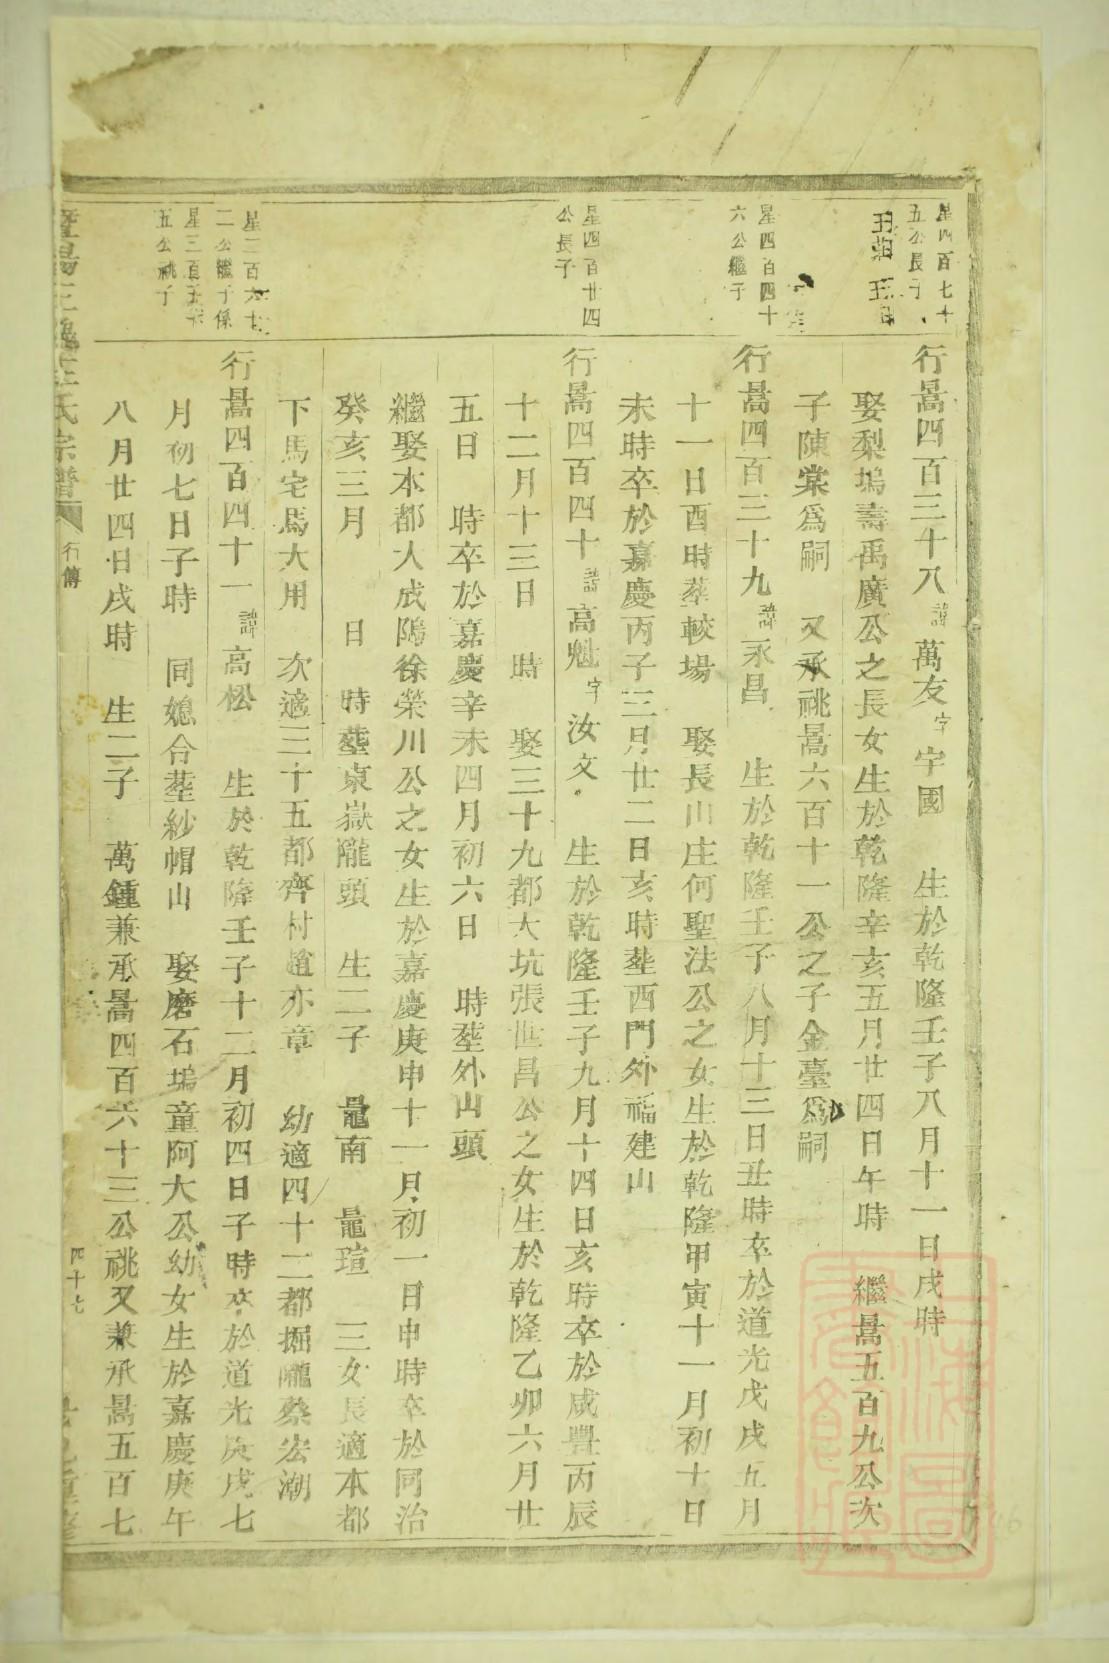 星四百七十
五公長子
行暠四百三十八 諱 萬友 字 宇國 生於乾隆壬子八月十一日戌時
娶梨塢壽禹廣公之長女生於乾隆辛亥五月廿四日午時 繼暠五百九公次
子陳棠爲嗣 又承祧暠六百十一公之子金臺爲嗣
星四百四十
六公繼子
行暠四百三十九 諱 永昌 生於乾隆壬子八月十三日丑時卒於道光戊戌五月
十一日酉時塟較場 娶長山庄何聖法公之女生於乾隆甲寅十一月初十日
未時卒於嘉慶丙子三月廿二日亥時塟西門外福建山
星四百廿四
公長子
行暠四百四十 諱 高魁 字 汝文 生於乾隆壬子九月十四日亥時卒於咸豐丙辰
十二月十三日 時 娶三十九都大坑張世昌公之女生於乾隆乙卯六月廿
五日 時卒於嘉慶辛未四月初六日 時塟外山頭
繼娶本都大成陽徐榮川公之女生於嘉慶庚申十一月初一日申時卒於同治
癸亥三月 日 時塟東嶽隴頭 生二子 鼂南 鼂瑄 三女長適本都
下馬宅馬大用 次適三十五都齊村趙亦章 幼適四十二都掘隴蔡宏潮
星二百六十
二公繼子係
星三百五十
五公祧子
行暠四百四十一 諱 高松 生於乾隆壬子十二月初四日子時卒於道光庚戌七
月初七日子時 同媳合塟紗帽山 娶磨石塢童阿大公幼女生於嘉慶庚午
八月廿四日戌時 生二子 萬鍾兼承暠四百六十三公祧又兼承暠五百七
氏宗譜
行傳
四十七